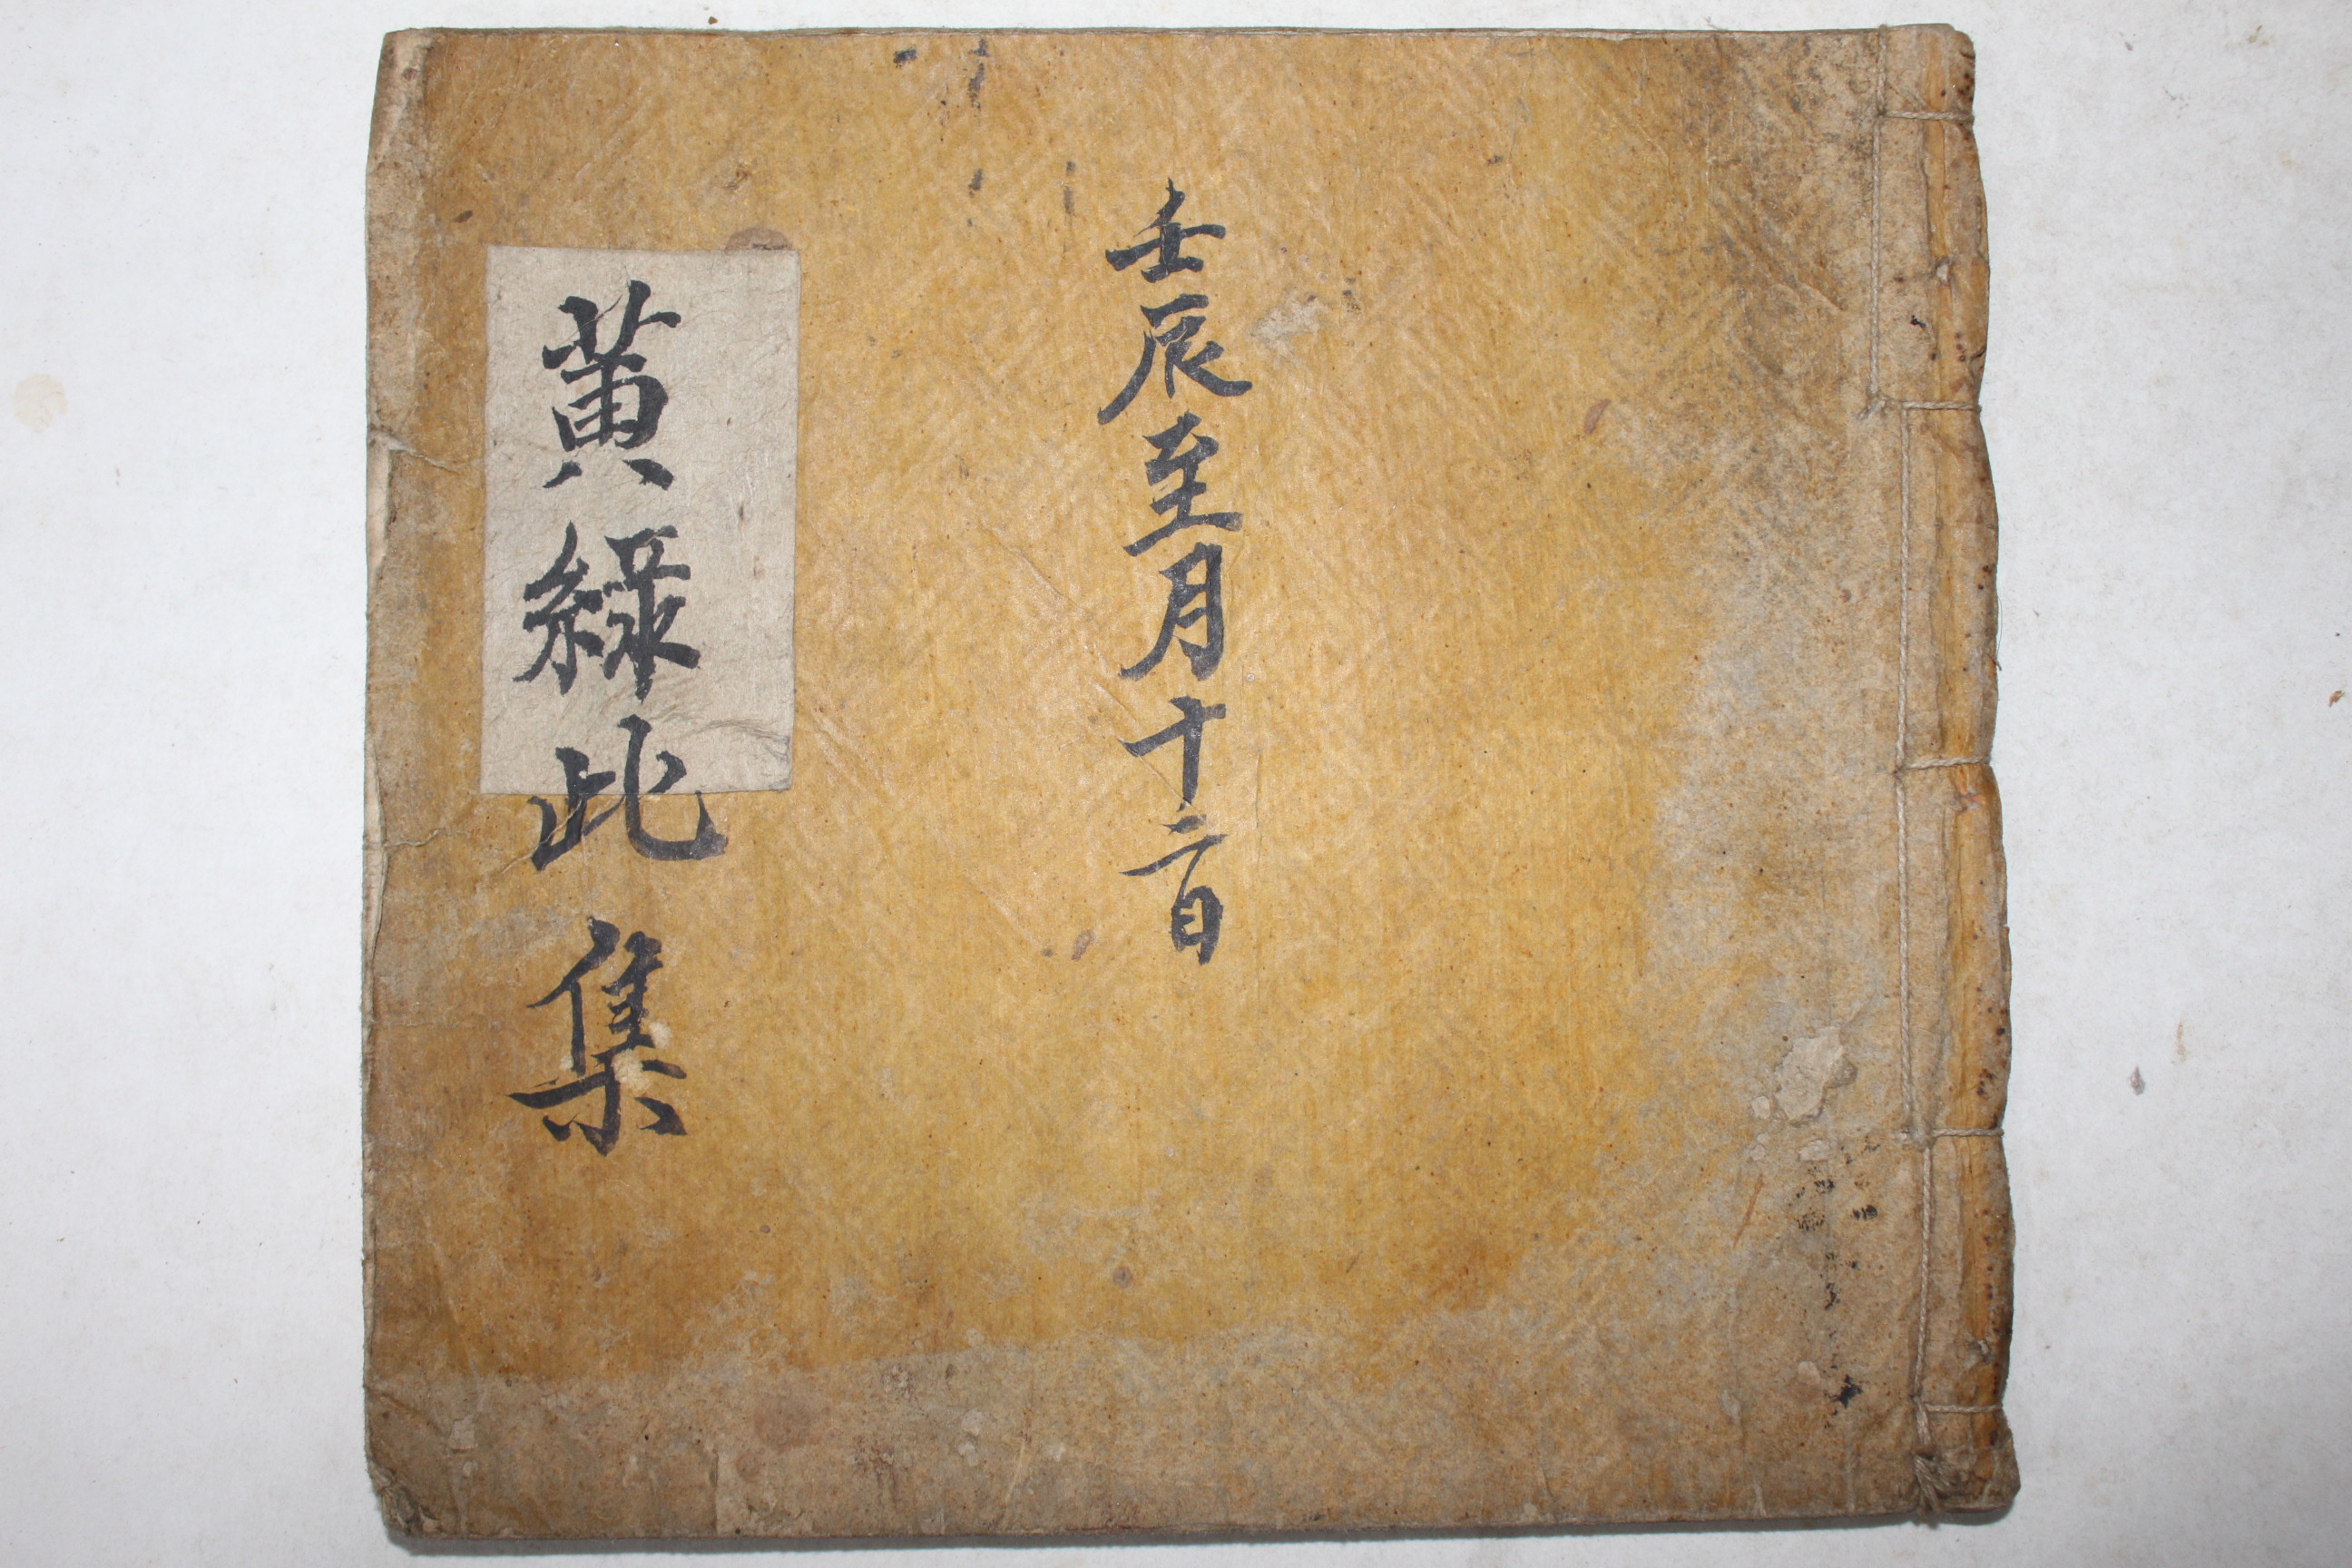 壬辰至月十二日
黃綠此集